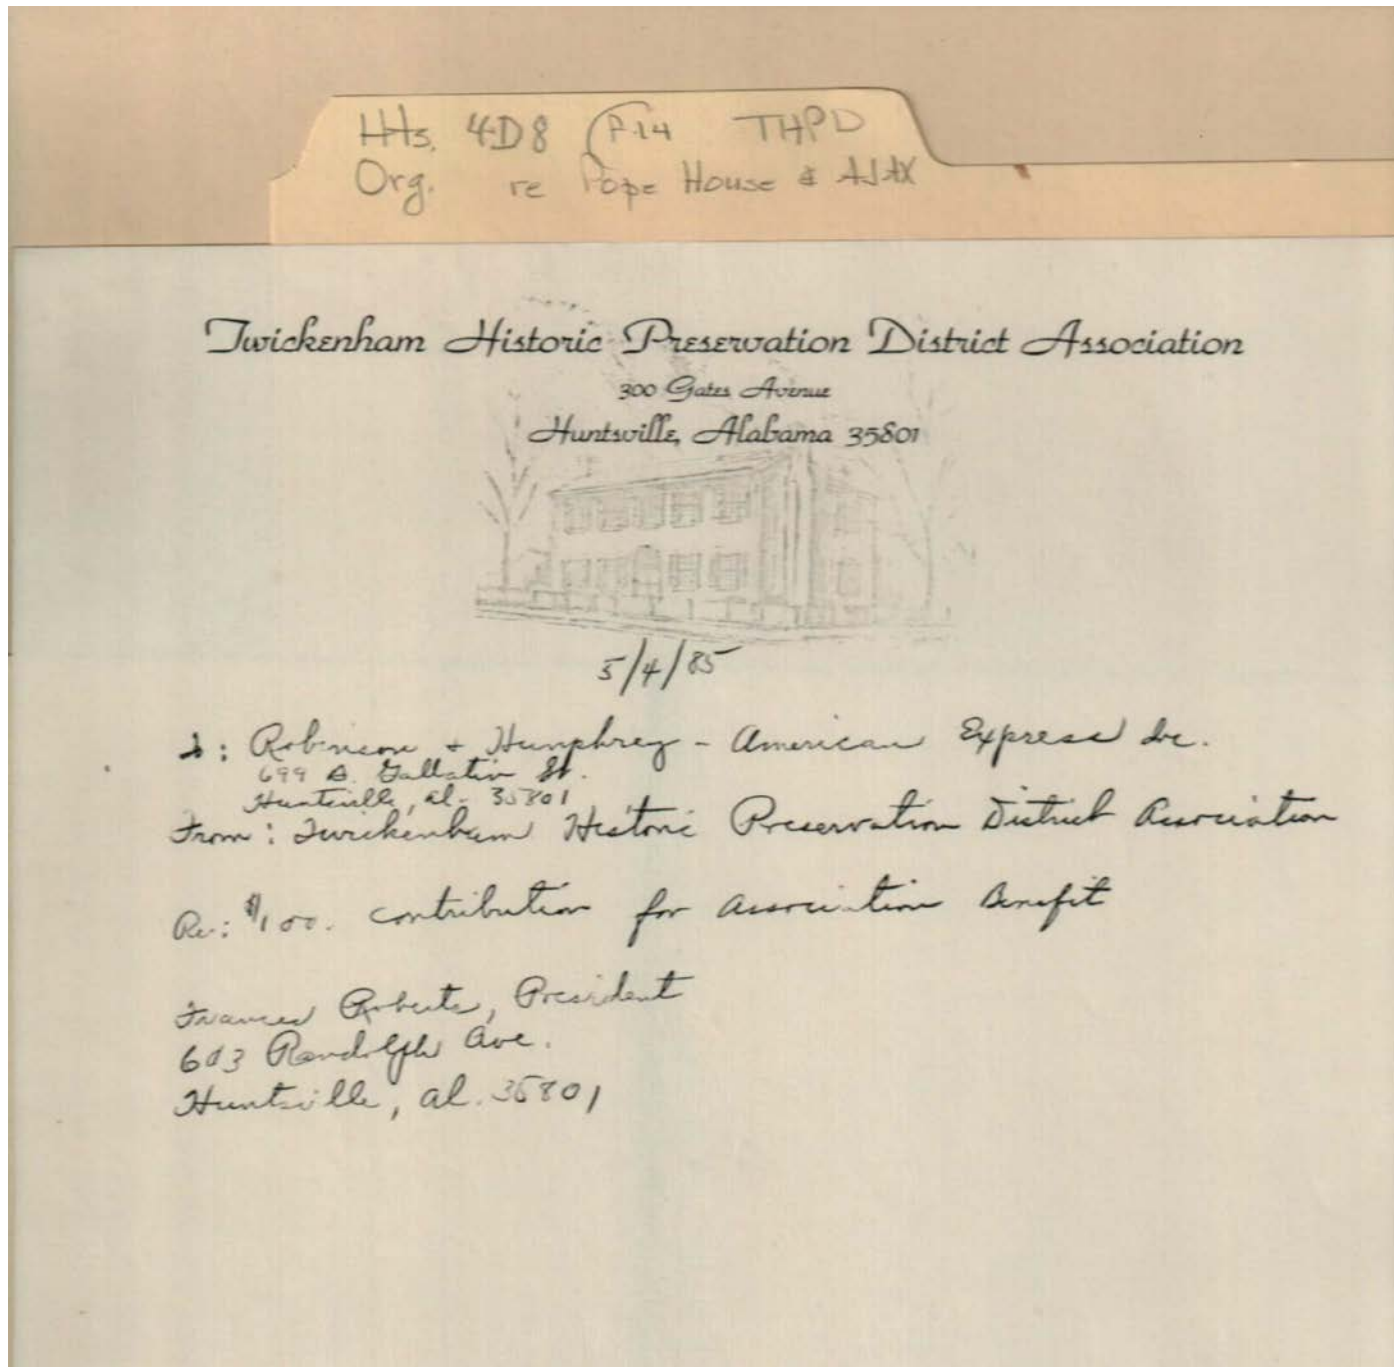 Hts. 4D8 (F.14 THPD
Org. re Pope House & AJAX
Twickenham Historic Preservation District Association
300 Gates Avenue
Huntsville, Alabama 35801
5/4/85
To: Robinson + Humphrey - American Express Inc.
699 A. Gallatin St.
Huntsville, Al. 35801
From: Twickenham Historic Preservation District Association
Re: $100. contribution for Association Benefit
Frances Roberts, President
603 Randolph Ave.
Huntsville, Al. 35801